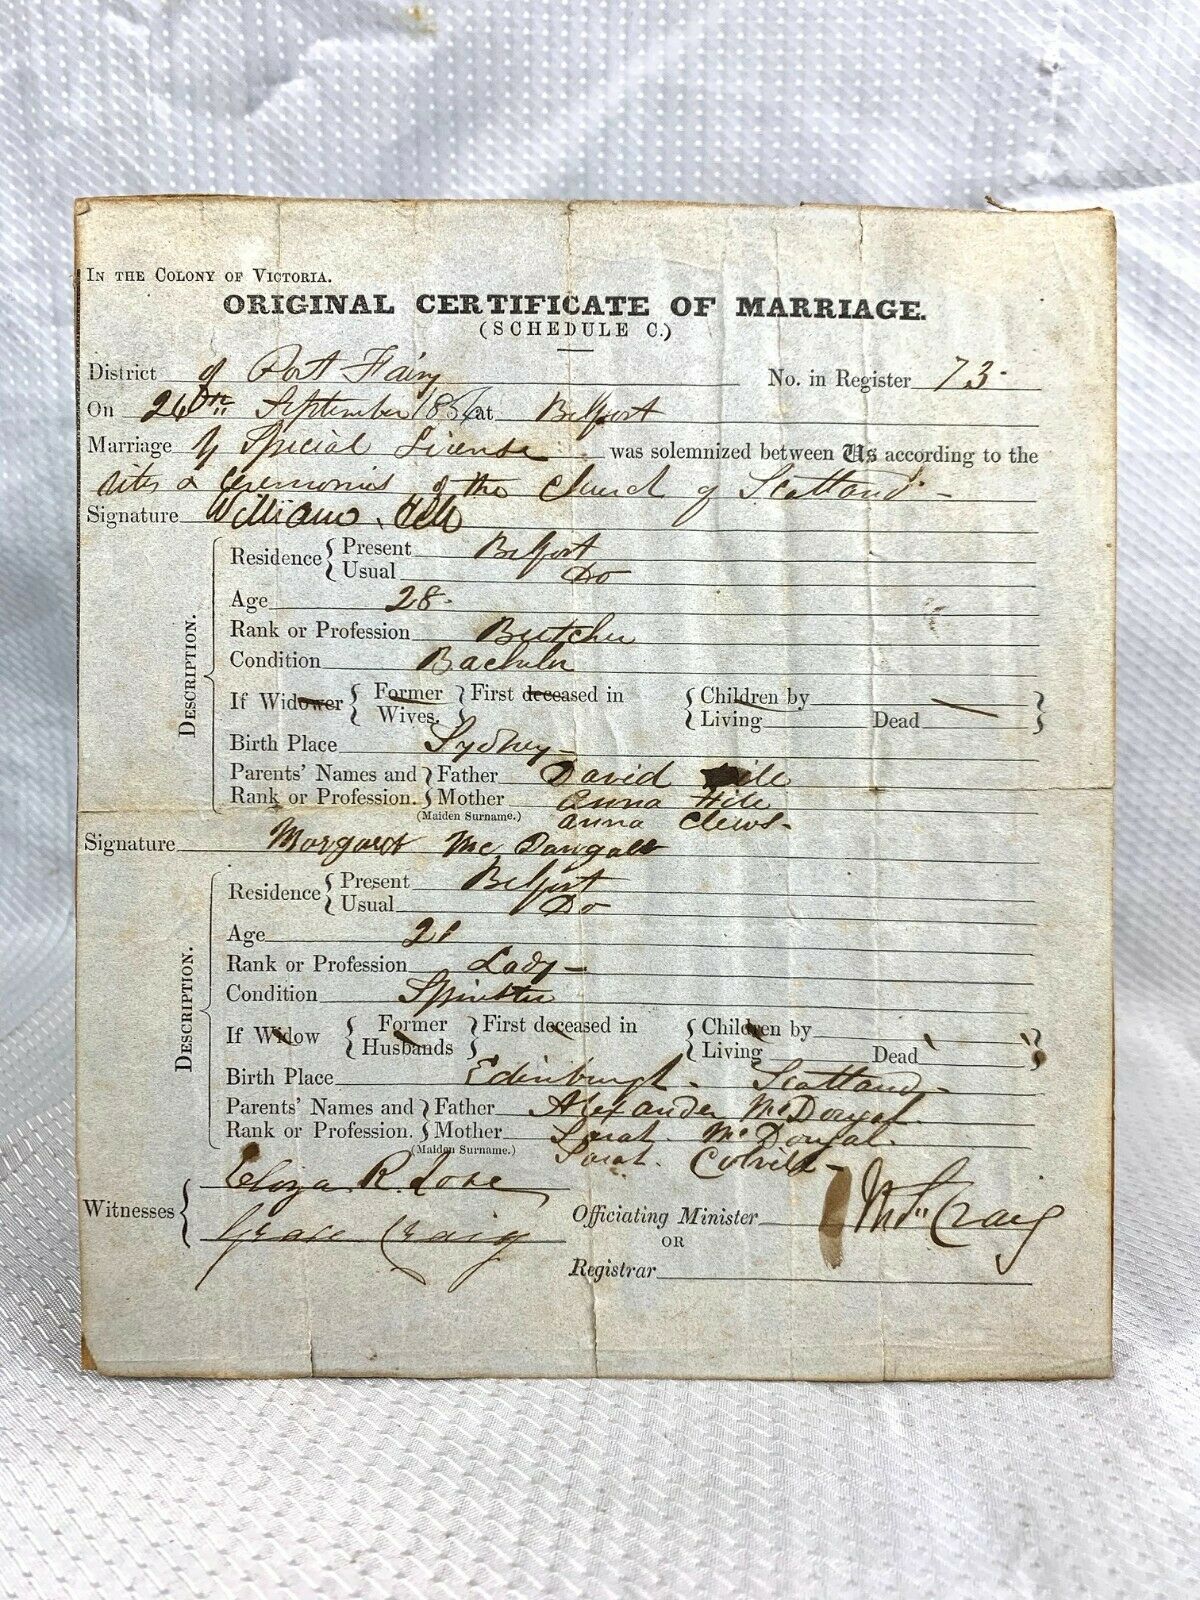 IN THE COLONY OF VICTORIA.
ORIGINAL CERTIFICATE OF MARRIAGE.
(SCHEDULE C.)
District of Port Fairy No. in Register 73
On September 185 at Belfort
Marriage by Special License was solemnized between Us according to the
rites & Ceremonies of the Church of Scotland
Signature William
DESCRIPTION.
Residence { Present Belfort
Usual Do
Age 28
Rank or Profession Butcher
Condition Bachelor
If Widower { Former Wives. } First deceased in { Children by
Living Dead }
Birth Place Sydney
Parents' Names and } Father David
Rank or Profession. } Mother Anna Hile
(Maiden Surname.) Anna Clews
Signature Margaret Mc Dougall
DESCRIPTION.
Residence { Present Belfort
Usual Do
Age 21
Rank or Profession Lady
Condition Spinster
If Widow { Former Husbands } First deceased in { Children by
Living Dead }
Birth Place Edinburgh Scotland
Parents' Names and } Father Alexander McDougal
Rank or Profession. } Mother Sarah McDougal
(Maiden Surname.) Sarah
Witnesses { Eliza R.
Grace Craig
Officiating Minister Craig
OR
Registrar